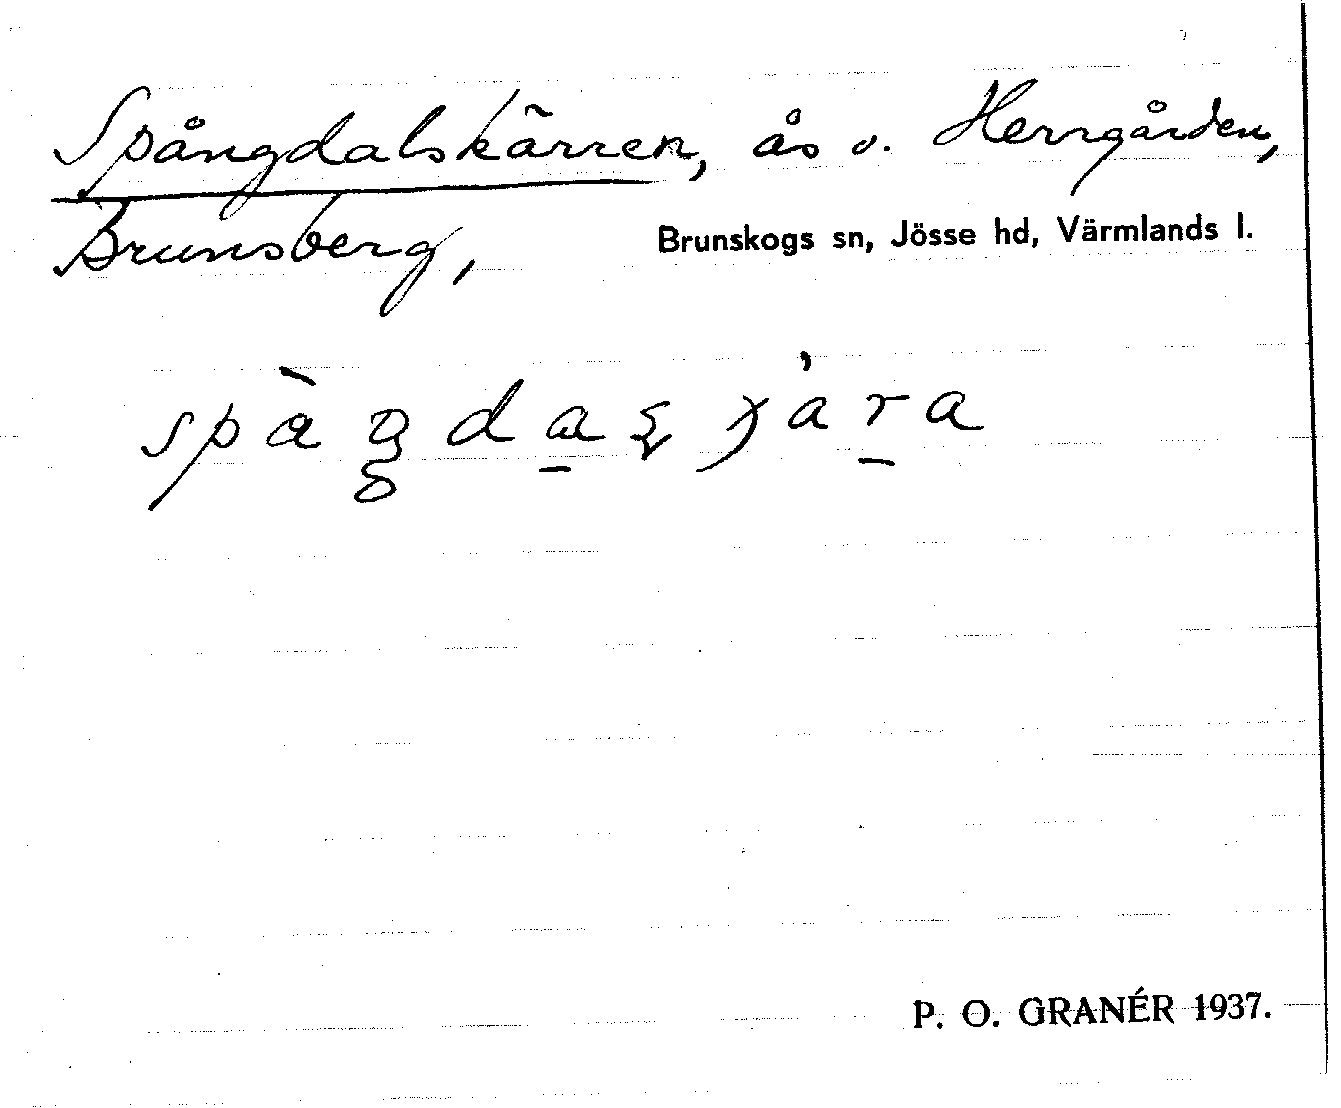 Spångdalskärren, ås v. Herrgården,
Brunsberg, Brunskogs sn, Jösse hd, Värmlands l.
P. O. GRANÉR 1937.